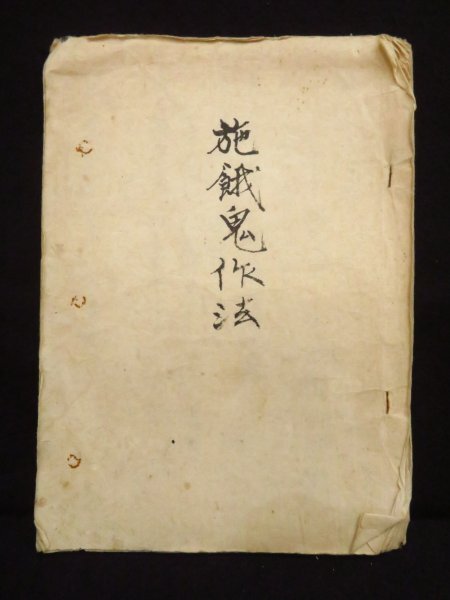 施餓鬼作法